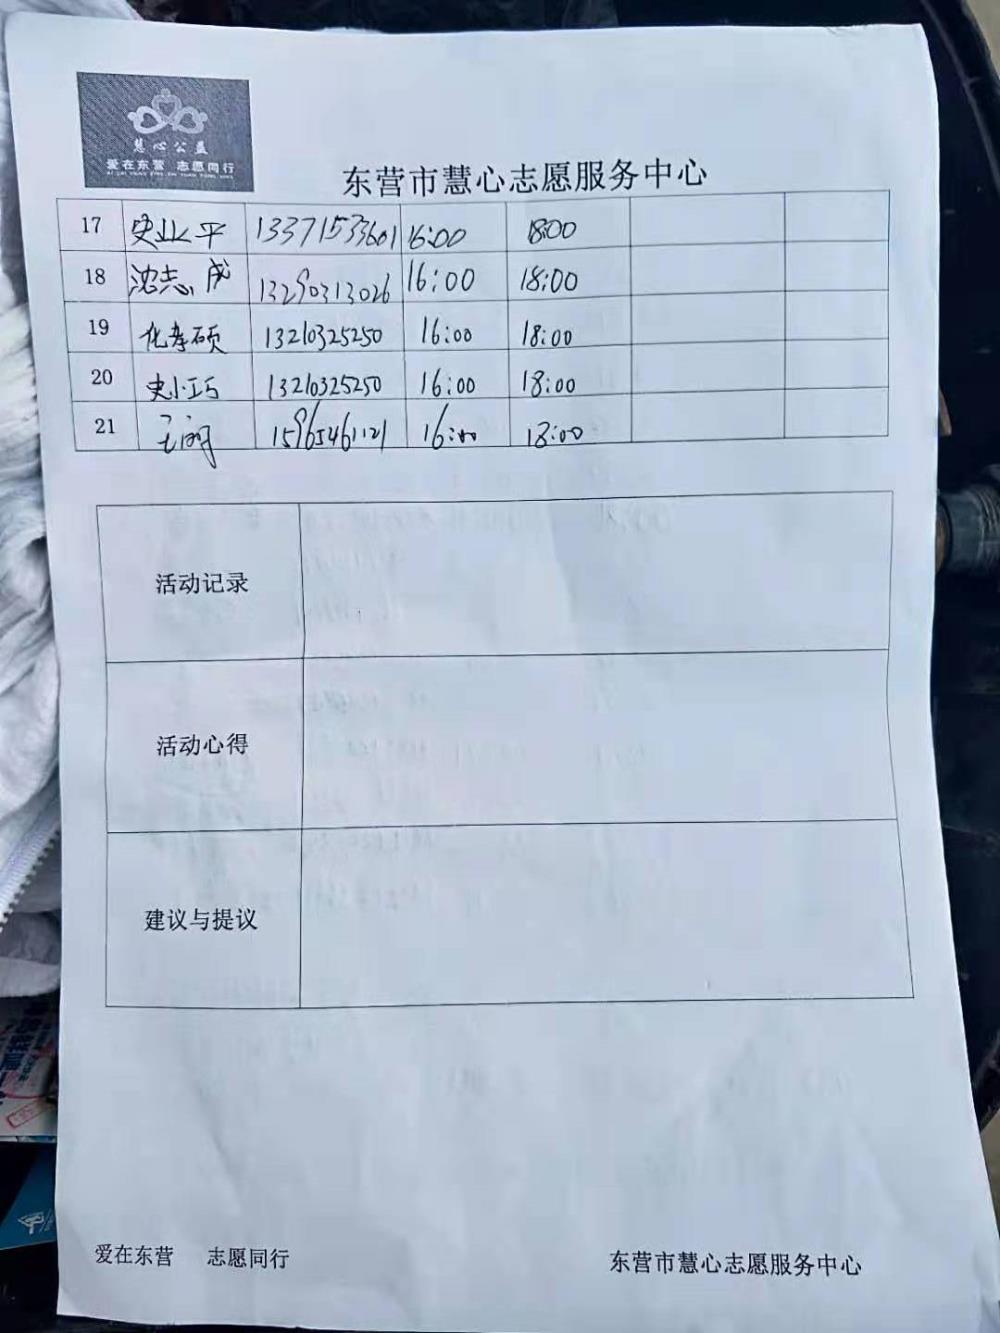 慧心公益
爱在东营 志愿同行
东营市慧心志愿服务中心
17 史业平 13371533601 16:00 18:00
18 沈志成 13290313026 16:00 18:00
19 化孝硕 13210325250 16:00 18:00
20 史小巧 13210325250 16:00 18:00
21 15965461121 16:00 18:00
活动记录
活动心得
建议与提议
爱在东营 志愿同行 东营市慧心志愿服务中心